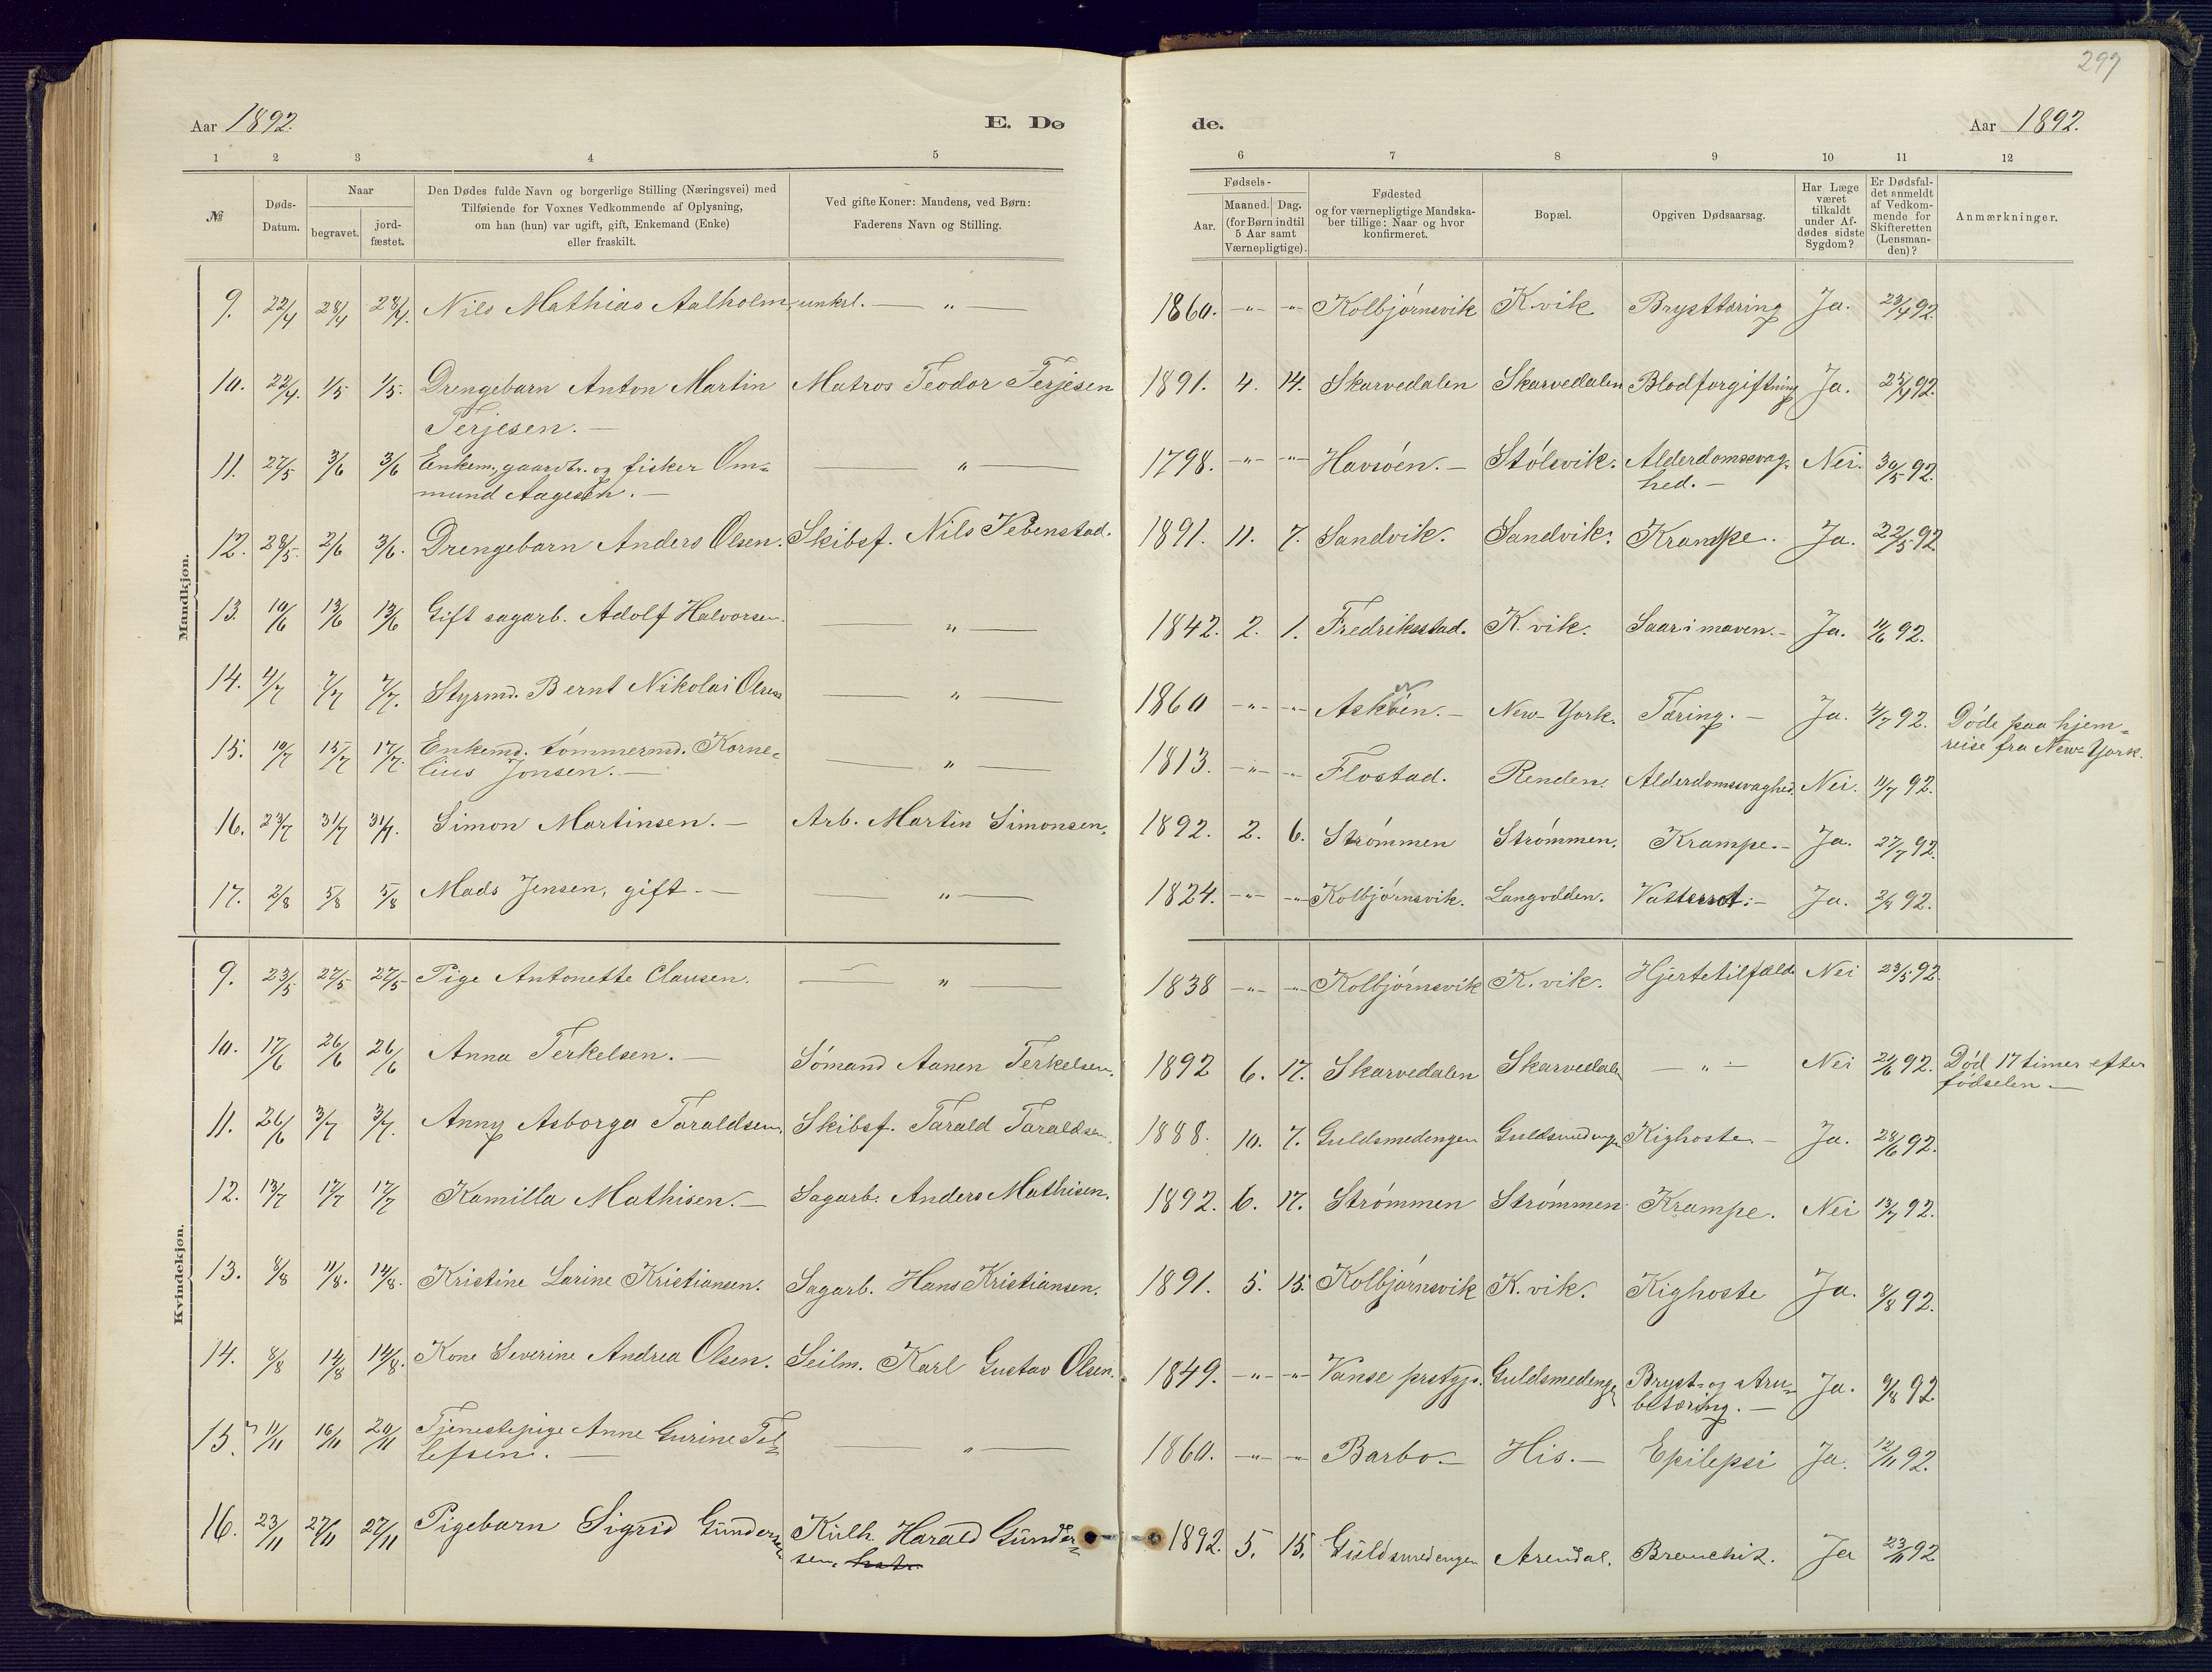 299
Aar 1892. E. Dø de. Aar 1892.
1 2 3 4 5 6 7 8 9 10 11 12
№
Døds-
Datum.
Naar
begravet.
jord-
fæstet.
Den Dødes fulde Navn og borgerlige Stilling (Næringsvei) med
Tilføiende for Voxnes Vedkommende af Oplysning,
om han (hun) var ugift, gift, Enkemand (Enke)
eller fraskilt.
Ved gifte Koner: Mandens, ved Børn:
Faderens Navn og Stilling.
Fødsels-
Aar.
Maaned. Dag.
(for Børn indtil
5 Aar samt
Værnepligtige).
Fødested
og for værnepligtige Mandska-
ber tillige: Naar og hvor
konfirmeret.
Bopæl.
Opgiven Dødsaarsag.
Har Læge
været
tilkaldt
under Af-
dødes sidste
Sygdom?
Er Dødsfal-
det anmeldt
af Vedkom-
mende for
Skifteretten
(Lensman-
den)?
Anmærkninger.
Mandkjøn.
9. 22/4 28/4 28/4. Nils Mathias Aalholm, unkrl. — „ — 1860. -„- -„- Kolbjørnsvik K.vik Brysttæring Ja. 23/4 92.
10. 22/4. 1/5 1/5. Drengebarn Anton Martin Matros Teodor Terjesen 1891. 4. 14. Skarvedalen Skarvedalen Blodforgiftning Ja. 25/4 92.
Terjesen. —
11. 27/5 3/6 3/6 Enkem., gaardbr. og fisker Om= — „ — 1798. -„- -„- Havsøen. — Stølsvik. Alderdomssvag= Nei. 30/5 92.
mund Aagesen. — hed. —
12. 28/5. 2/6 3/6. Drengebarn Anders Olsen. Skibsf. Nils Vebenstad. 1891. 11. 7. Sandvik. Sandvik. Krampe. Ja. 22/5 92
13. 10/6 13/6 13/6 Gift sagarb. Adolf Halvorsen. — „ — 1842. 2. 1. Fredriksstad. K. vik. Saar i maven. — Ja. 11/6 92.
14. 4/7 7/7 7/7. Styrmd. Bernt Nikolai Olsen — „ — 1860 -„- -„- Askøen. — New-York. Tæring. — Ja. 4/7 92. Døde paa hjem=
reise fra New-York.
15. 10/7 15/7 17/7. Enkemd. tømmermd. Korne= — „ — 1813. -„- -„- Flostad. Renden. Alderdomssvaghed. Nei. 11/7 92.
lius Jonsen. —
16. 23/7 31/7 31/7. Simon Martinsen. — Arb. Martin Simonsen. 1892. 2. 6. Strømmen Strømmen. Krampe. — Ja. 27/7 92.
17. 2/8 5/8 5/8 Mads Jensen, gift — — „ — 1824. -„- -„- Kolbjørnsvik. Langodden. Vattersot. — Ja. 2/8 92.
Kvindekjøn.
9. 23/5 27/5 27/5 Pige Antonette Clausen. — „ — 1838 -„- -„- Kolbjørnsvik K. vik. Hjertetilfælde Nei 23/5 92.
10. 17/6 26/6 26/6 Anna Terkelsen. — Sømand Aanen Terkelsen. 1892 6. 17. Skarvedalen Skarvedalen — „ — Nei 21/6 92. Død 17 timer efter
fødselen —
11. 26/6 3/7 3/7. Anny Asborga Taraldsen. Skibsf. Tarald Taraldsen. 1888. 10. 7. Guldsmedengen Guldsmedengen Kighoste — Ja. 28/6 92.
12. 13/7 17/7 17/7 Kamilla Mathisen. — Sagarb. Anders Mathisen. 1892. 6. 17. Strømmen Strømmen. Krampe. Nei 13/7 92.
13. 8/8 11/8. 14/8. Kristine Larine Kristiansen. Sagarb. Hans Kristiansen. 1891. 5. 15. Kolbjørnsvik K. vik. Kighoste Ja. 8/8 92.
14. 8/8 14/8 14/8. Kone Severine Andrea Olsen. Seilm. Karl Gustav Olsen. 1849. -„- -„- Vanse prstgj. Guldsmedengen Bryst- og stru= Ja. 9/8 92.
betæring. —
15. 11/11 16/11 20/11 Tjenestepige Anne Gurine Tel= — „ — 1860. -„- -„- Barbo. — His. — Epilepsi Ja. 12/11 92.
lefsen. —
16. 23/11 27/11 27/11 Pigebarn Sigrid Gundersen Kulh. Harald Gunder= 1892. 5. 15. Guldsmedengen Arendal. Bronchit. Ja 23/11 92
sen.